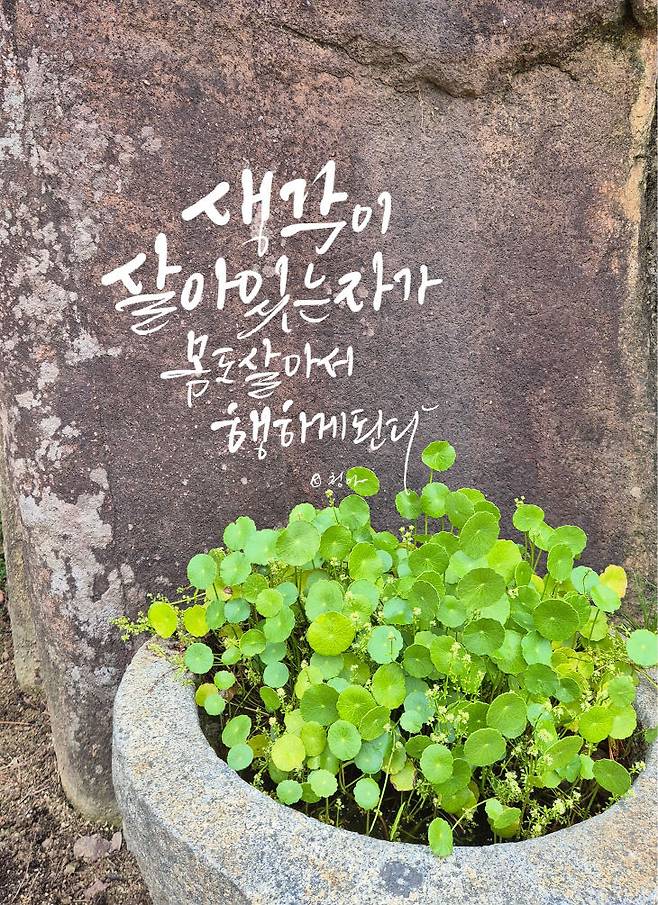 생각이
살아있는자가
몸도살아서
행하게된다
청아